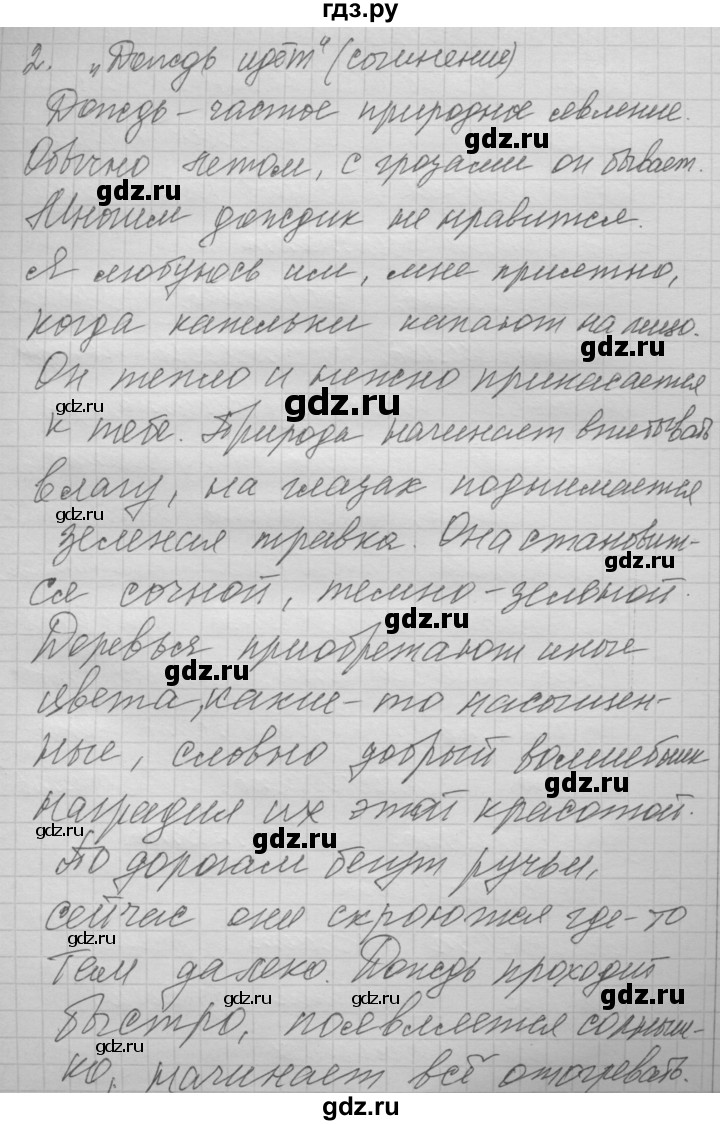 гдз.ру
2. „Дождь идёт" (сочинение)
Дождь – частое природное явление.
Обычно летом, с грозами он бывает.
gdz.ru
gdz.ru
Многим дождик не нравится.
gdz.ru
Я любуюсь им, мне приятно,
когда капельки капают на лицо.
gdz.ru
Он тепло и нежно прикасается
gdz.ru
gdz.ru
к тебе. Природа начинает впитывать
влагу, на глазах поднимается
gdz.ru
зеленая травка. Она становит-
gdz.ru
ся сочной, темно-зеленой.
gdz.ru
Деревья приобретают иные
gdz.ru
цвета, какие-то насыщен-
ные, словно добрый волшебник
gdz.ru
наградил их этой красотой.
gdz.ru
gdz.ru
По дорогам бегут ручьи,
сейчас они скроются где-то
gdz.ru
там далеко. Дождь проходит
gdz.ru
gdz.ru
gdz.ru
быстро, появляется солныш-
gdz.ru
ко, начинает всё отогревать.
gdz.ru